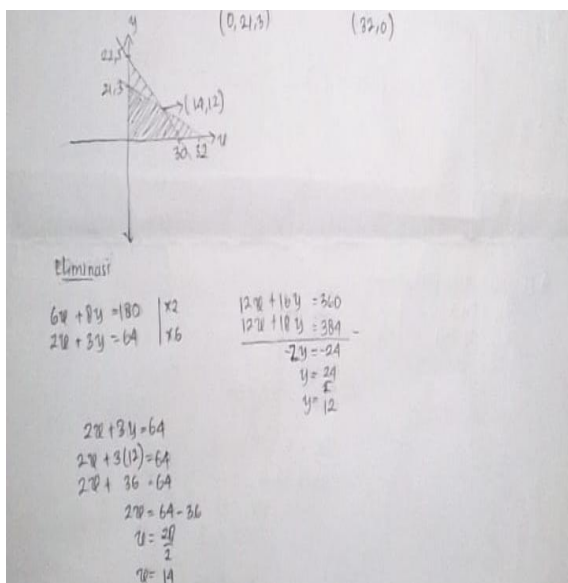 (0,21,3) (32,0)
y
22,5
21,3
(14,12)
30 32 x
Eliminasi
6x + 8y = 180 | x2
2x + 3y = 64 | x6
12x + 16y = 360
12x + 18y = 384 -
-2y = -24
y = 24
y = 12
2x + 3y = 64
2x + 3(12) = 64
2x + 36 = 64
2x = 64 - 36
x = 28
2
x = 14